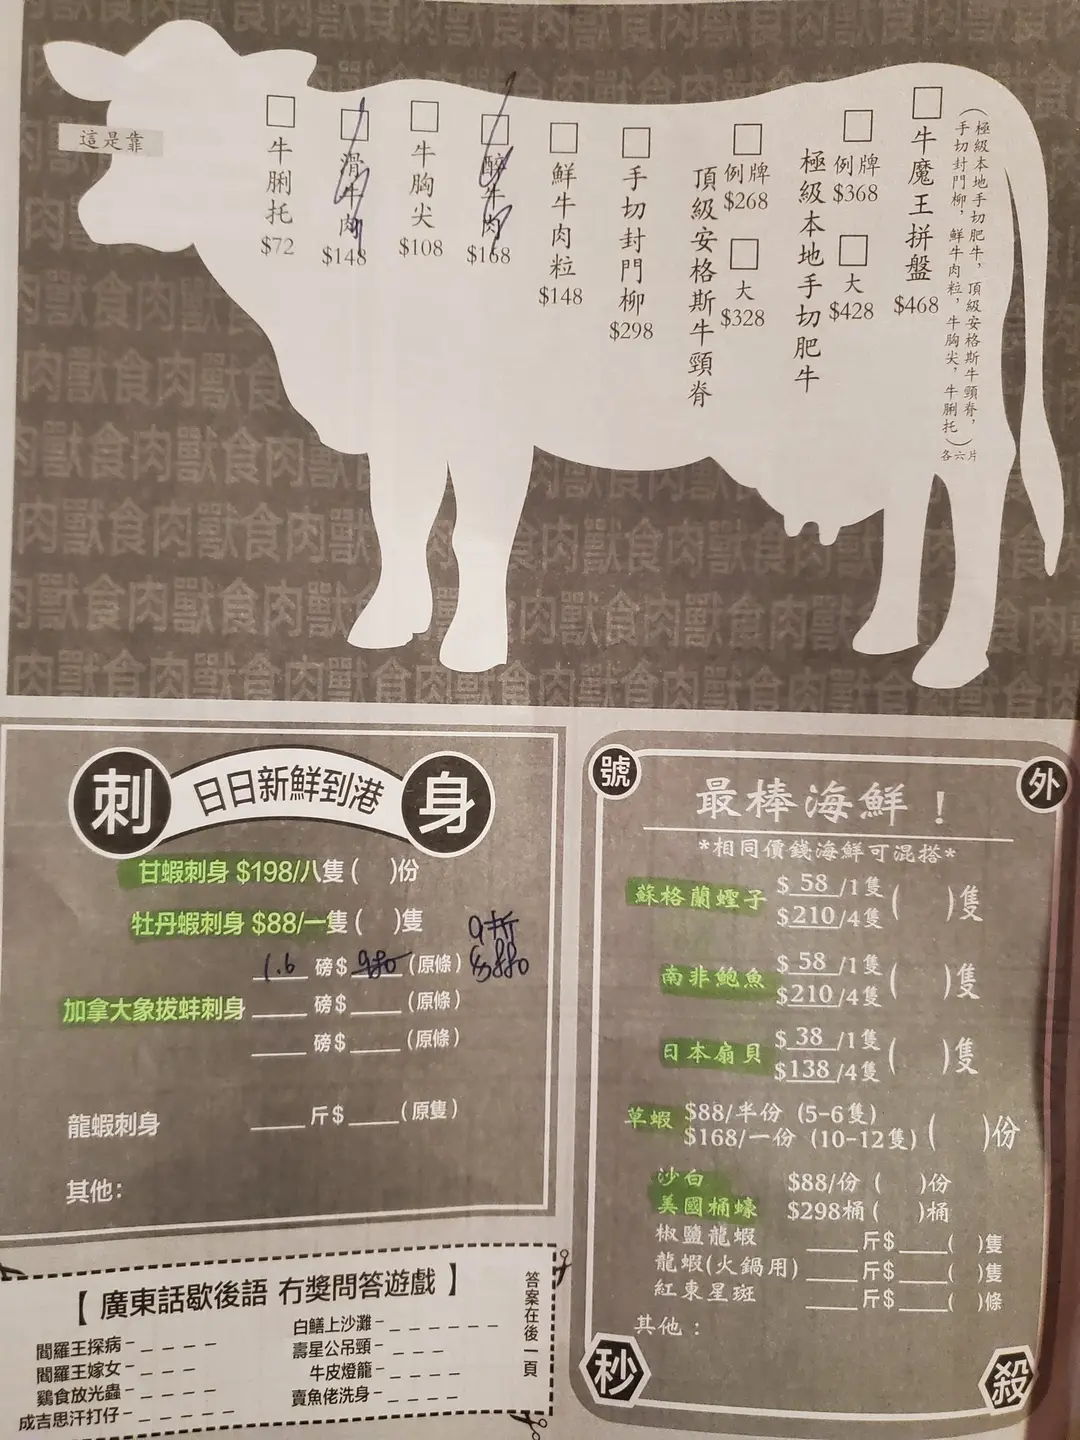 這是靠
牛脷托
$72
滑牛肉
$148
牛胸尖
$108
醉牛肉
$168
鮮牛肉粒
$148
手切封門柳
$298
頂級安格斯牛頸脊
例牌
$268
大
$328
極級本地手切肥牛
例牌
$368
大
$428
牛魔王拼盤
$468
(極級本地手切肥牛，頂級安格斯牛頸脊，
手切封門柳，鮮牛肉粒，牛胸尖，牛脷托)
各六片
刺 日日新鮮到港 身
甘蝦刺身 $198/八隻 ( )份
牡丹蝦刺身 $88/一隻 ( )隻
9折
1.6 磅 $ 980 (原條) $880
加拿大象拔蚌刺身 ____ 磅 $ ____ (原條)
____ 磅 $ ____ (原條)
龍蝦刺身 ____ 斤 $ ____ (原隻)
其他：
號外
最棒海鮮！
*相同價錢海鮮可混搭*
蘇格蘭蟶子 $ 58 /1隻 ( )隻
$210/4隻
南非鮑魚 $ 58 /1隻 ( )隻
$210/4隻
日本扇貝 $ 38 /1隻 ( )隻
$138/4隻
草蝦 $88/半份 (5-6隻)
$168/一份 (10-12隻) ( )份
沙白 $88/份 ( )份
美國桶蠔 $298桶 ( )桶
椒鹽龍蝦 ____斤$____( )隻
龍蝦(火鍋用) ____斤$____( )隻
紅東星斑 ____斤$____( )條
其他：
秒殺
【 廣東話歇後語 冇獎問答遊戲 】
閻羅王探病- _ _ _ _
閻羅王嫁女- _ _ _ _
鷄食放光蟲- _ _ _ _
成吉思汗打仔- _ _ _ _ _
白鱔上沙灘- _ _ _ _ _ _
壽星公吊頸- _ _ _
牛皮燈籠- _ _ _ _
賣魚佬洗身- _ _ _ _
答案在後一頁